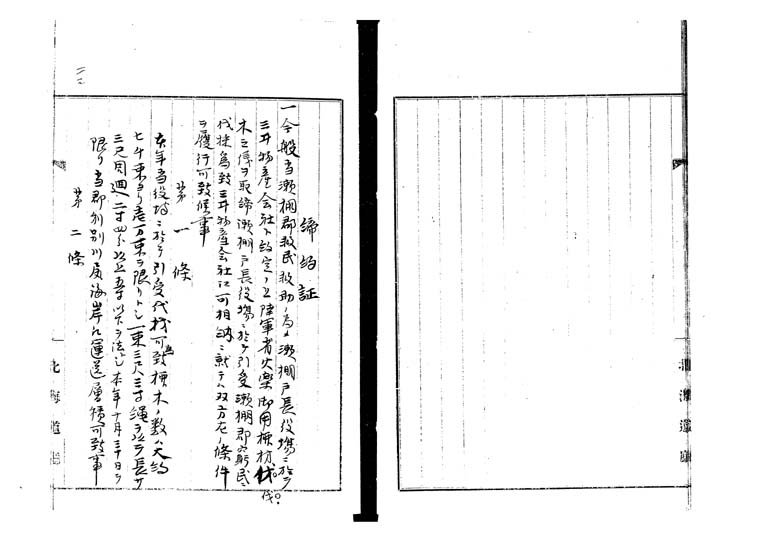 締約証
一今般当瀬棚郡救民救助ノ為メ瀬棚戸長役場ニ於テ
三井物産会社ト約定ノ上陸軍省火薬御用榛材伐
木之停ヲ取締瀬棚戸長役場ニ於テ引受瀬棚郡窮民ニ
伐採為致三井物産会社江可相納ニ就テハ双方左ノ条件
ヲ履行可致候事
第一條
亥年当役場ニ於テ引受代材可致榛木ノ数ハ大約
七千束ヨリ壱万束ヲ限リトシ一束三尺三寸縄ヲ以テ長サ
三尺周廻二寸四分以上五寸以下ヲ法トシ本年十月三十日ヲ
限リ当郡利別川尻海岸江運送層積可致事
第二條
北海道庁